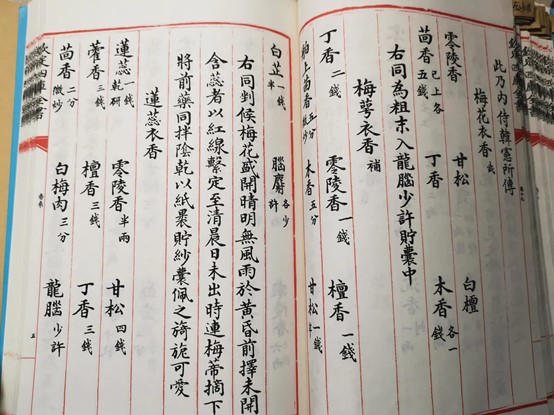 欽定四庫全書
此乃内侍韓憲所傳
梅花衣香 武
零陵香 甘松 白檀
茴香 已上各五錢 丁香 木香 各一錢
右同為粗末入龍腦少許貯囊中
梅蕚衣香 補
丁香 二錢 零陵香 一錢 檀香 一錢
舶上茴香 五分微炒 木香 五分 甘松 一錢
白芷 一錢半 腦麝 各少許
右同剉候梅花盛開晴明無風雨於黄昏前擇未開
含蕊者以紅線繫定至清晨日未出時連梅蒂摘下
將前藥同拌陰乾以紙裹貯紗囊佩之旖旎可愛
蓮蕊衣香
蓮蕊 一錢乾研 零陵香 半兩 甘松 四錢
藿香 三錢 檀香 三錢 丁香 三錢
茴香 二分微炒 白梅肉 三分 龍腦 少許
欽定四庫全書
五